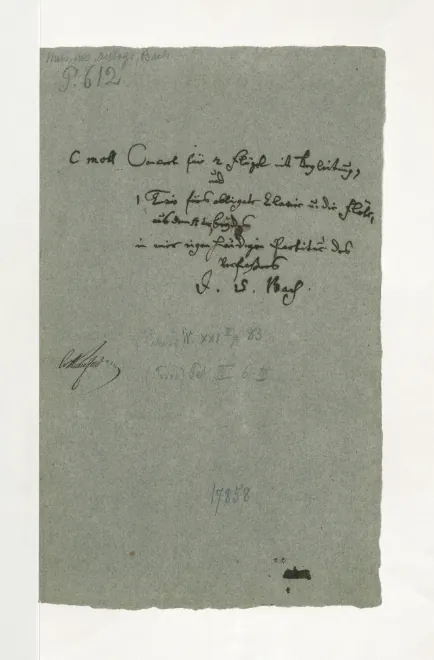 Mus. ms. autogr. Bach
P. 612
C moll Concert für 2 Flügel mit Begleitung,
und
1 Trio fürs obligate Clavier u. die Flöte,
aus dem
in einer eigenhändigen Partitur des
Verfassers
J. S. Bach.
W. XXI II p. 83
III 6
17858